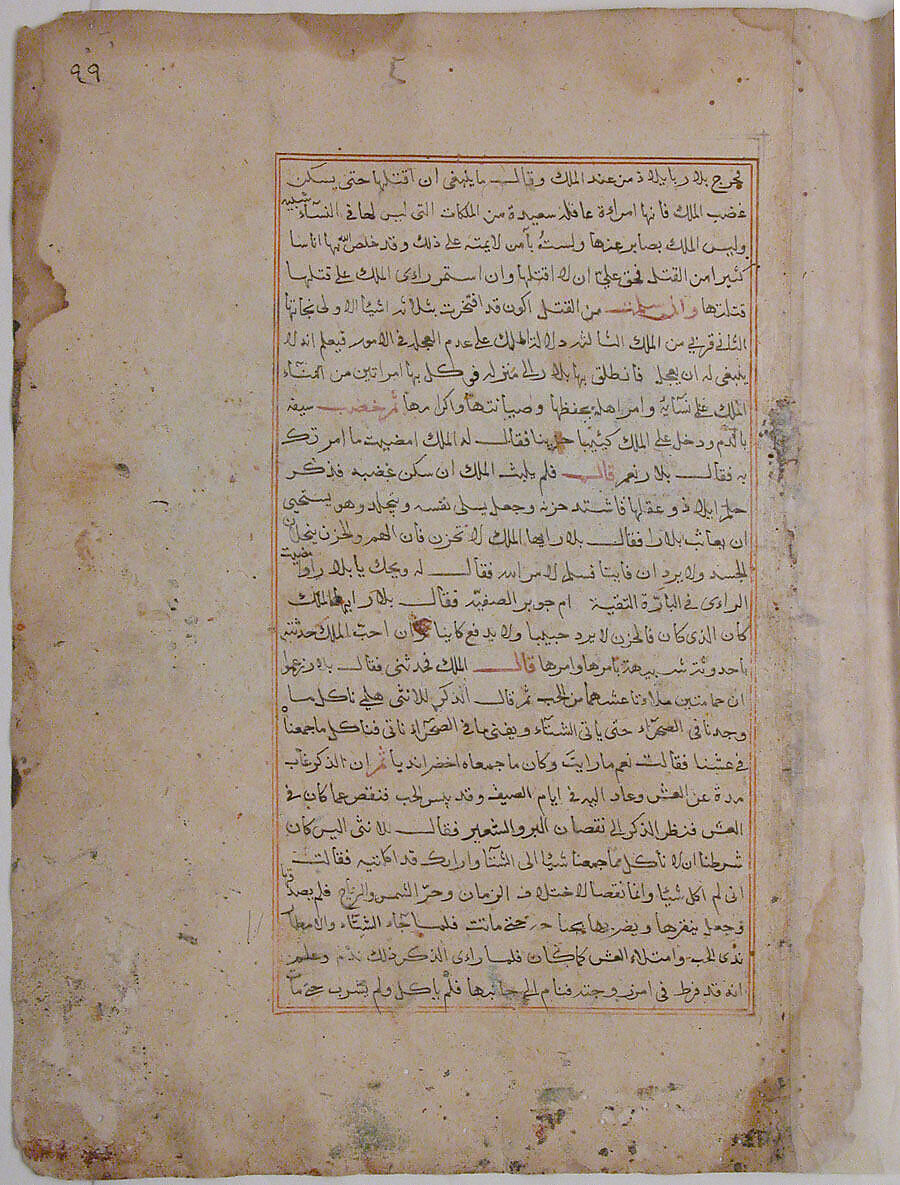 ٩٩
فخرج بلار بايلاذ من عند الملك وقال ما ينبغى ان اقتلها حتى يسكن
غضب الملك فانها امراءة عاقلة سعيدة من الملكات التى ليس لها فى النساء شبيه
وليس الملك بصابر عنها ولست بآمن لايمته على ذلك وقد خلص الله بها اناسا
كثيرا من القتل فحق على ان لا اقتلها وان استمر راءى الملك على قتلها
قتلتها وان سلمت من القتل اكون قد افتخرت بثلاثة اشيا الاولى نجاتها
الثانى قربى من الملك الثالثة دلالة الملك على عدم العجلة فى الامور فيعلم انه لا
ينبغى له ان يعجل فانطلق بها بلار الى منزله فوكل بها امراتين من امناء
الملك على نسآيه وامر اهله بحفظها وصيانتها واكرامها ثم خضب سيفه
بالدم ودخل على الملك كئيبا حزينا فقال له الملك امضيت ما امرتك
به فقال بلار نعم قال فلم يلبث الملك ان سكن غضبه فذكر
حلم ايلاذ وعقلها فاشتد حزنه وجعل يسلى نفسه ويتجلد وهو يستحيى
ان يعاتب بلارا فقال بلار ايها الملك لا تحزن فان الهم والحزن ينحلان
الجسد ولا يردان فايتا فسلم لامر الله فقال له ويحك يا بلار اوا مضيت
الراءى فى البارة التقية ام جوير الصفية فقال بلار ايها الملك
كان الذى كان فالحزن لا يرد حبيبا ولا يدفع كاينا وان احب الملك حدثته
باحدوثة شبيهة بامرها وامرها قال الملك فحدثنى فقال بلار زعموا
ان حمامتين ملاءتا عشهما من الحب ثم قال الذكر للانثى هلمى ناكل ما
وجدنا فى الصحراء حتى ياتى الشتاء ويفنى ما فى الصحراء ناتى فناكل ما جمعنا
فى عشنا فقالت نعم ما رايت وكان ما جمعاه اخضر نديا ثم ان الذكر غاب
مدة عن العش وعاد اليه فى ايام الصيف وقد يبس الحب فنقص عما كان فى
العش فنظر الذكر الى نقصان البر والشعير فقال للانثى اليس كان
شرطنا ان لا ناكل مما جمعنا شيئا الى الشتا وارارك قد اكلتيه فقالت
انى لم اكل شيئا وانما نقصا لاختلاف الزمان وحر الشمس والرياح فلم يصدقها
وجعل ينقرها ويضربها بجناحه حتى ماتت فلما جآء الشتاء والامطار
ندى الحب وامتلاء العش كما كان فلما راءى الذكر ذلك ندم وعلم
انه قد فرط فى امر زوجته فنام الى جانبها فلم ياكل ولم يشرب حتى مات